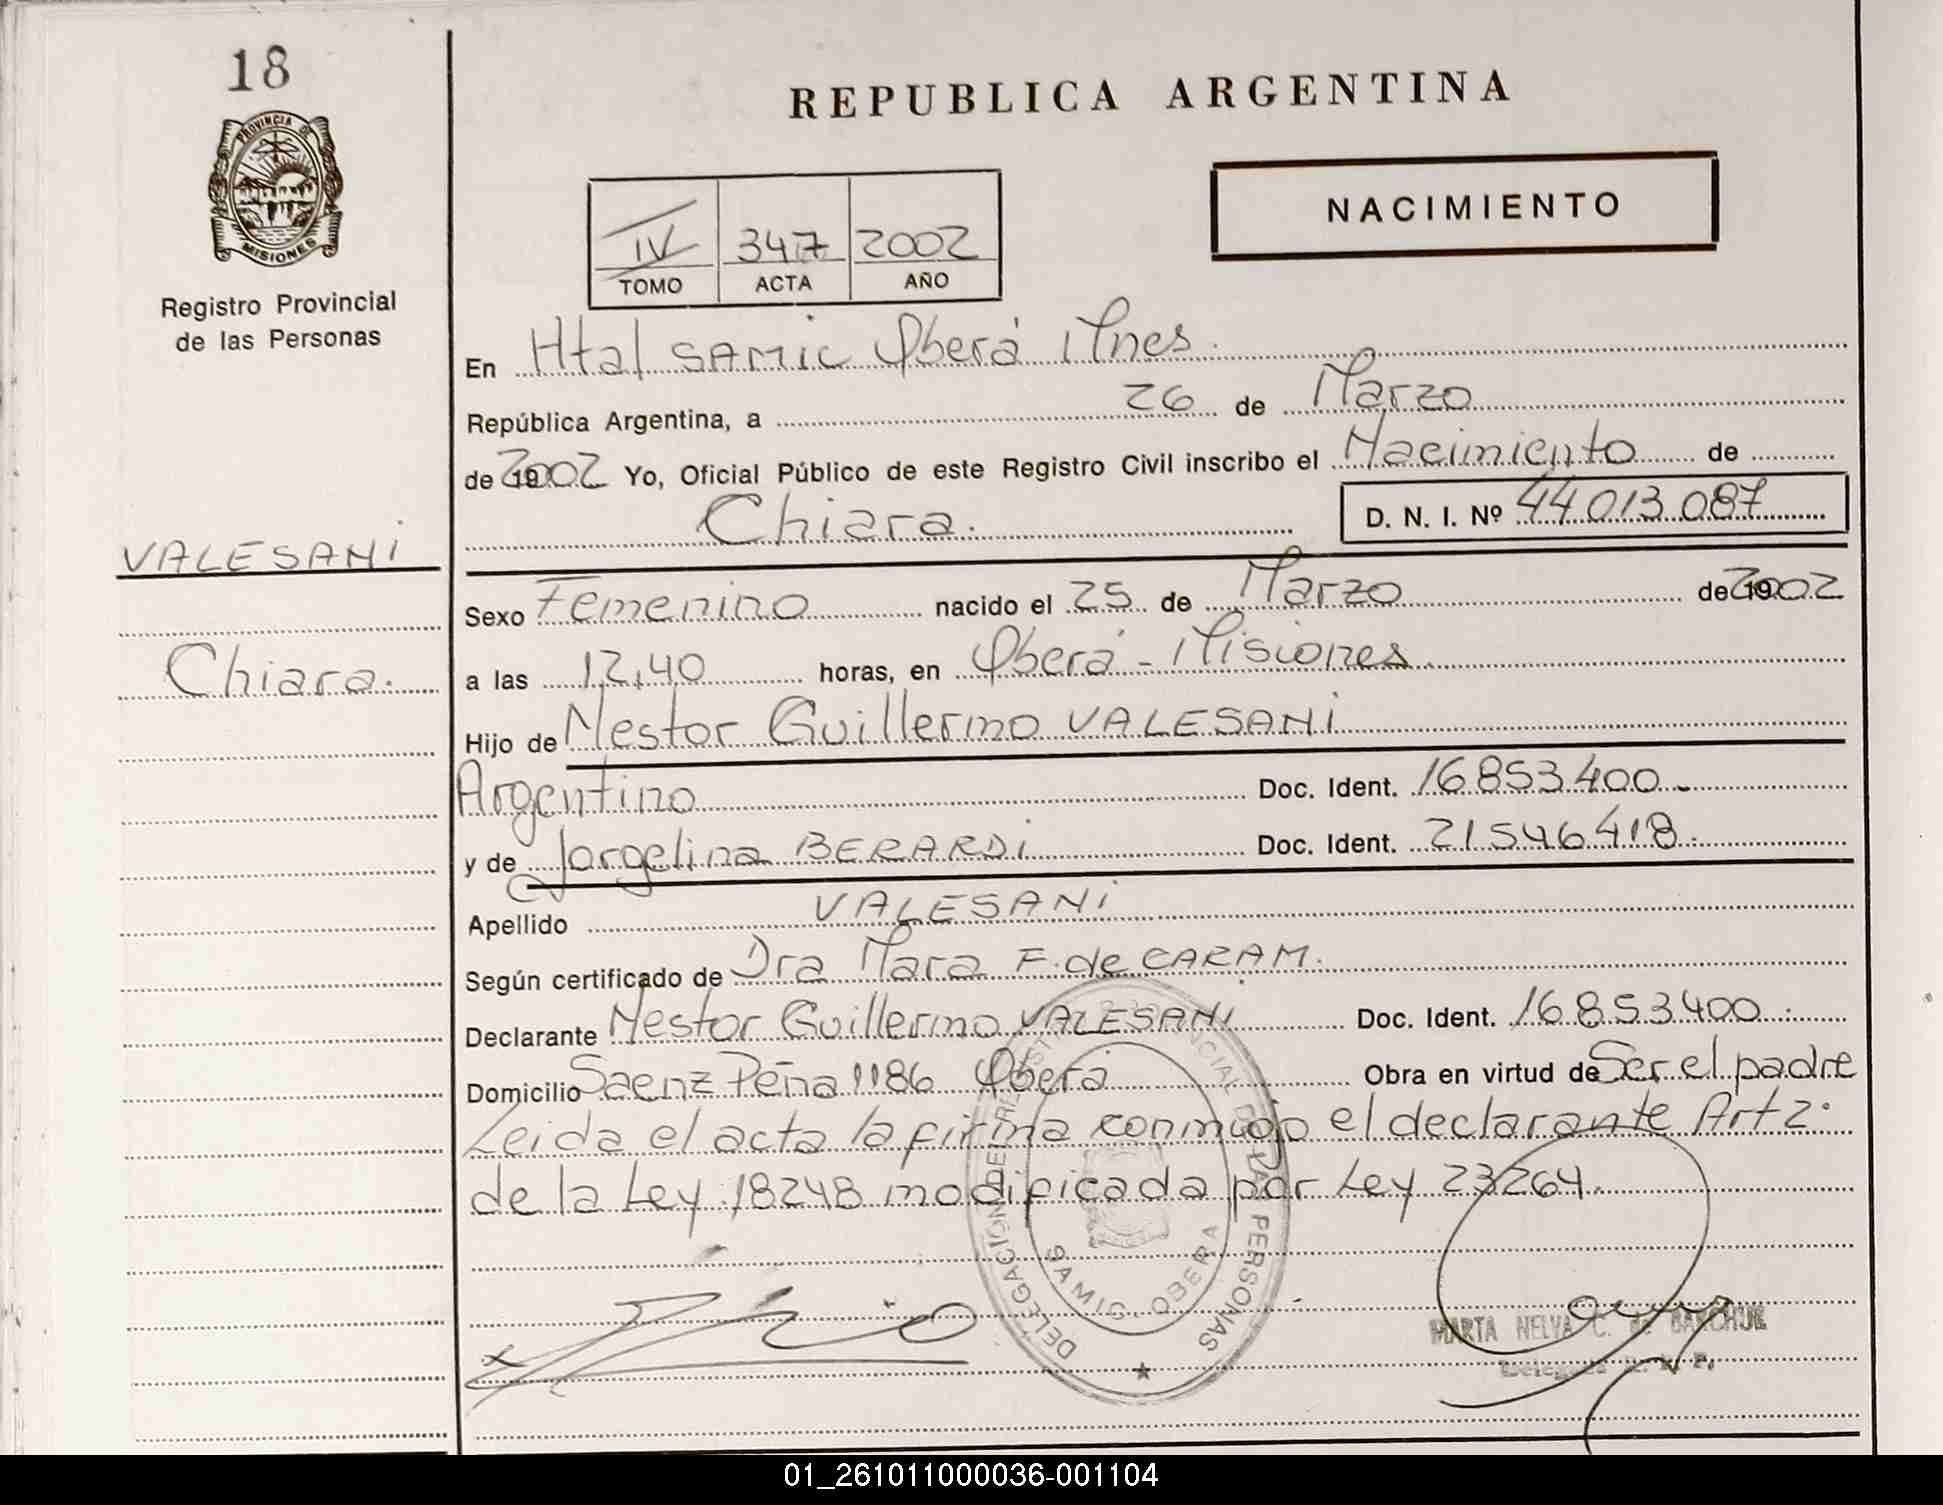 18
PROVINCIA DE
MISIONES
Registro Provincial
de las Personas
REPUBLICA ARGENTINA
NACIMIENTO
IV 347 2002
TOMO ACTA AÑO
En Htal SAMIC Oberá Mnes.
República Argentina, a 26 de Marzo
de 2002 Yo, Oficial Público de este Registro Civil inscribo el Nacimiento de
Chiara. D. N. I. Nº 44.013.087
VALESANI
Chiara.
Sexo Femenino nacido el 25 de Marzo de 2002
a las 12,40 horas, en Oberá - Misiones
Hijo de Nestor Guillermo VALESANI
Argentino Doc. Ident. 16853.400
y de Jorgelina BERARDI Doc. Ident. 21546418.
Apellido VALESANI
Según certificado de Dra Mara F. de CARAM.
Declarante Nestor Guillermo VALESANI Doc. Ident. 16853400.
Domicilio Saenz Peña 1186 Oberá Obra en virtud de Ser el padre
Leida el acta la firma conmigo el declarante Art 2.
de la Ley 18248 modificada por Ley 23264.
DELEGACION DE REGISTRO PROVINCIAL DE LAS PERSONAS
SAMIC. OBERA
MARTA NELVA C. de
01_261011000036-001104